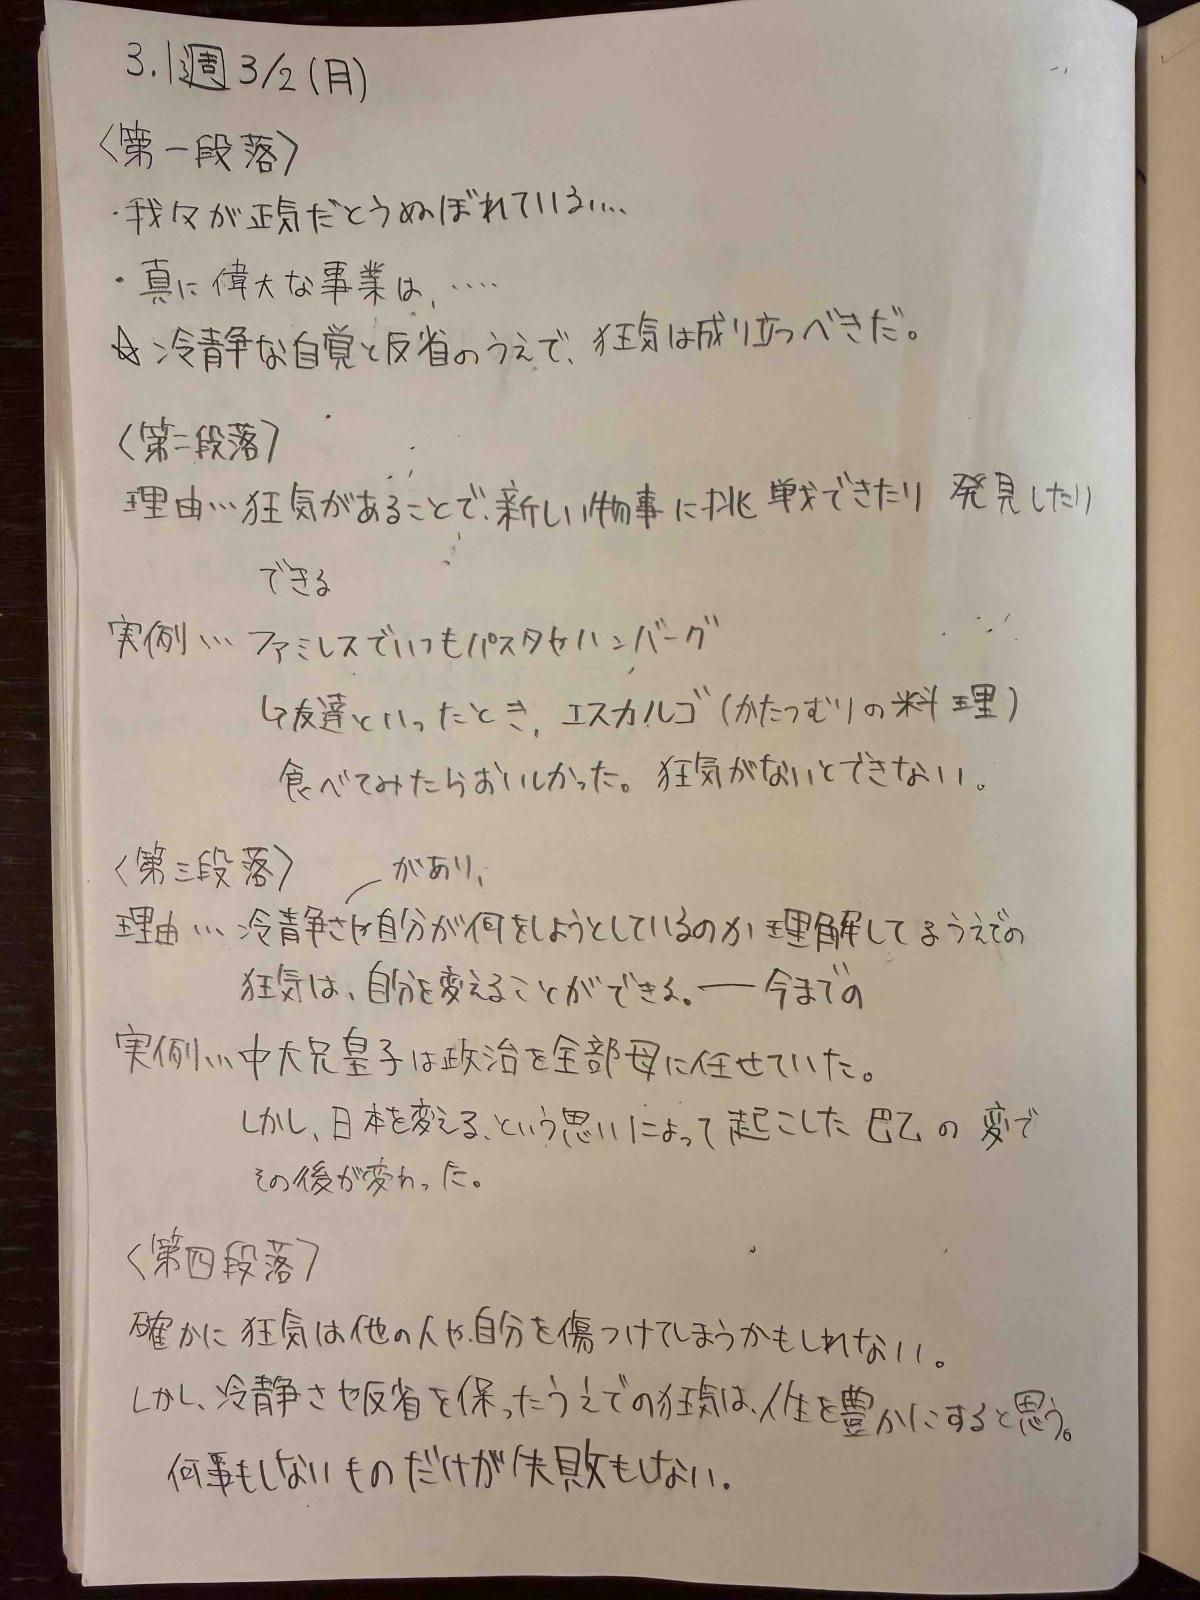 3.1週 3/2(月)
〈第一段落〉
・我々が正気だとうぬぼれている…
・真に偉大な事業は、‥‥
☆冷静な自覚と反省のうえで、狂気は成り立つべきだ。
〈第二段落〉
理由… 狂気があることで、新しい物事に挑戦できたり 発見したり
できる
実例… ファミレスでいつもパスタやハンバーグ
↳友達といったとき、エスカルゴ(かたつむりの料理)
食べてみたらおいしかった。狂気がないとできない。
〈第三段落〉 があり、
理由… 冷静さや自分が何をしようとしているのか理解してるうえでの
狂気は、自分を変えることができる。― 今までの
実例… 中大兄皇子は政治を全部母に任せていた。
しかし、日本を変える、という思いによって起こした 巴乙の変で
その後が変わった。
〈第四段落〉
確かに狂気は他の人や、自分を傷つけてしまうかもしれない。
しかし、冷静さや反省を保ったうえでの狂気は、人生を豊かにすると思う。
何事もしないものだけが失敗もしない。